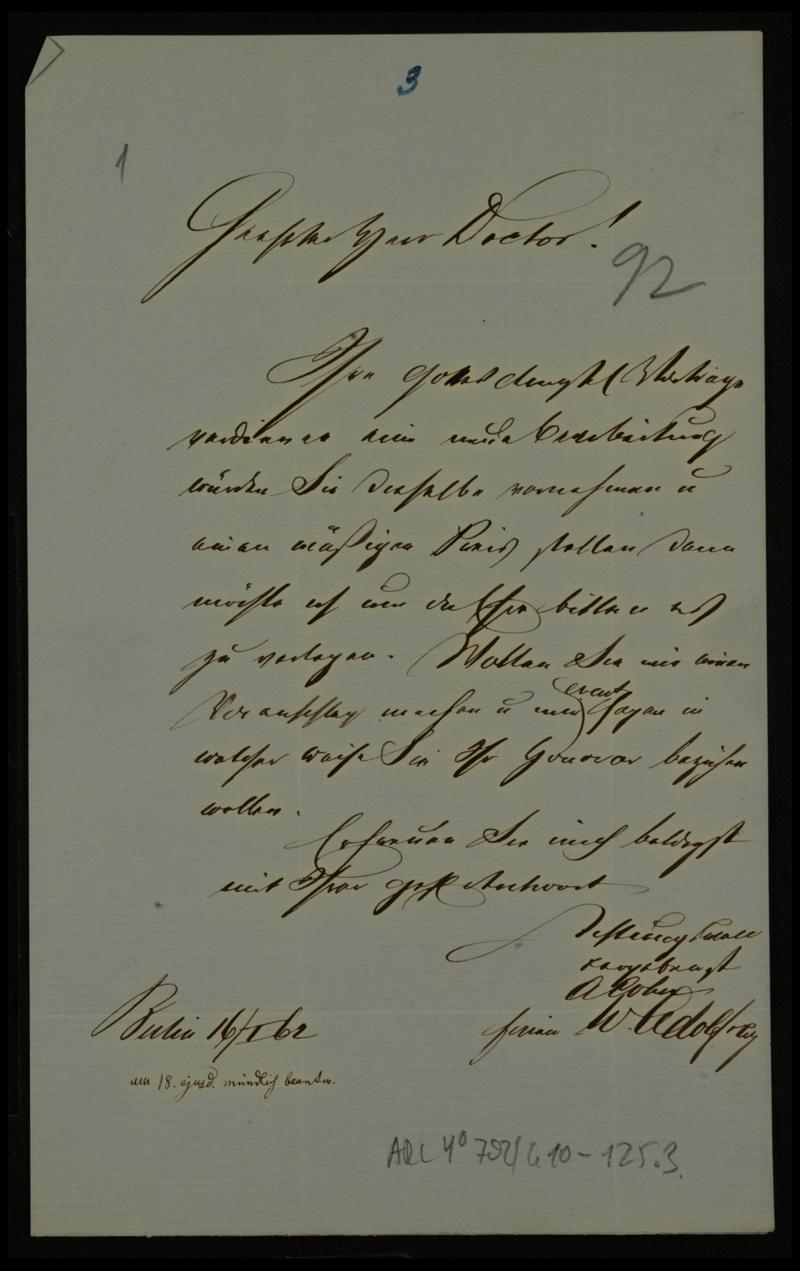 3
1
Geehrter Herr Doctor!
92
Ihre gottesdienstl Vorträge
verdienen eine neue Bearbeitung
würden Sie dieselbe vornehmen u
einen mäßigen Preis stellen dann
möchte ich um die Ehre bitten es
zu verlegen. Wollen Sie mir einen
Voranschlag machen u mir event sagen in
welcher weise Sie Ihr Honorar beziehen
wollen.
Erfreuen Sie mich baldigst
mit Ihrer gefl Antwort
Achtungsvoll
ergebenst
A Cohn
firma W. Adolf & Co
Berlin 16/I 62
am 18. ejusd. mündlich beantw.
ARC 4° 792/G10-125.3